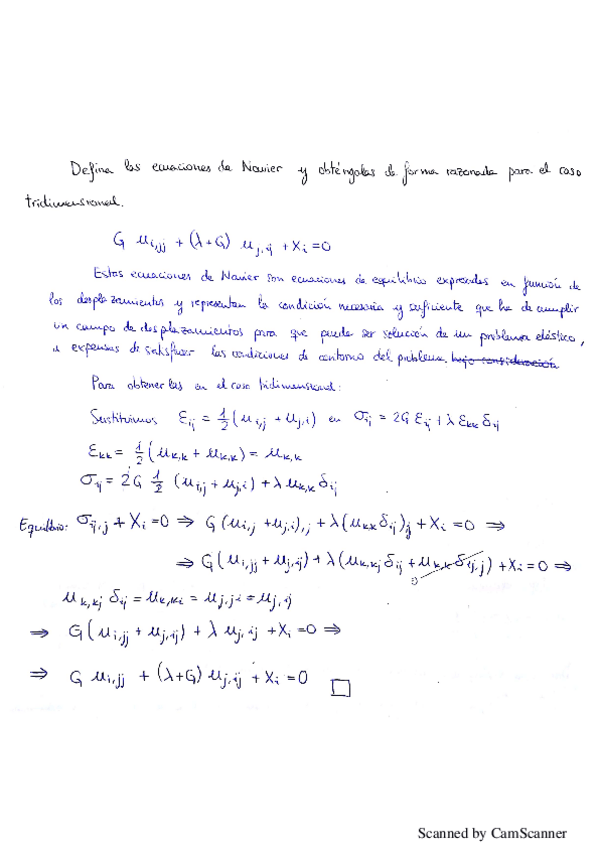 Defina las ecuaciones de Navier y obténgalas de forma razonada para el caso
tridimensional.
G u_{i,jj} + (λ+G) u_{j,ij} + X_i = 0
Estas ecuaciones de Navier son ecuaciones de equilibrio expresadas en función de
los desplazamientos y representan la condición necesaria y suficiente que ha de cumplir
un campo de desplazamientos para que pueda ser solución de un problema elástico,
a expensas de satisfacer las condiciones de contorno del problema. bajo consideración
Para obtenerlas en el caso tridimensional:
Sustituimos ε_{ij} = 1/2 (u_{i,j} + u_{j,i}) en σ_{ij} = 2G ε_{ij} + λ ε_{kk} δ_{ij}
ε_{kk} = 1/2 (u_{k,k} + u_{k,k}) = u_{k,k}
σ_{ij} = 2G 1/2 (u_{i,j} + u_{j,i}) + λ u_{k,k} δ_{ij}
Equilibrio: σ_{ij,j} + X_i = 0 ⇒ G (u_{i,j} + u_{j,i})_{,j} + λ (u_{k,k} δ_{ij})_{,j} + X_i = 0 ⇒
⇒ G (u_{i,jj} + u_{j,ij}) + λ (u_{k,kj} δ_{ij} + u_{k,k} δ_{ij,j}) + X_i = 0 ⇒
0
u_{k,kj} δ_{ij} = u_{k,ki} = u_{j,ji} = u_{j,ij}
⇒ G (u_{i,jj} + u_{j,ij}) + λ u_{j,ij} + X_i = 0 ⇒
⇒ G u_{i,jj} + (λ+G) u_{j,ij} + X_i = 0 □
Scanned by CamScanner